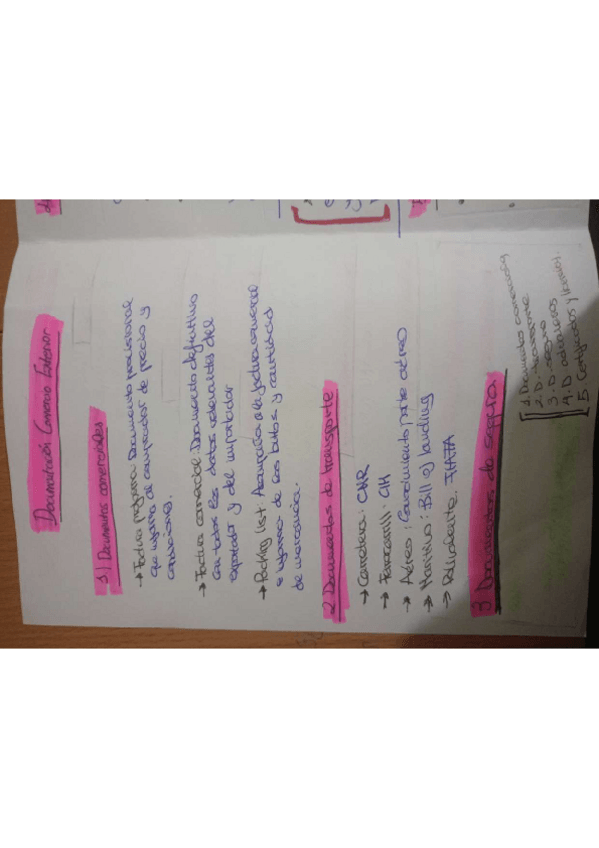 Documentación Comercio Exterior
1) Documentos comerciales
→ Factura proforma: Documento provisional
que informa al comprador de precio y
condiciones.
→ Factura comercial: Documento definitivo
con todos los datos relevantes del
exportador y del importador
→ Packing list: Acompaña a la factura comercial
e informa de los bultos y cantidad
de mercancía.
2 Documentos de transporte
→ Carretera: CMR
→ Ferrocarril: CIM
→ Aéreo: Conocimiento porte aéreo
→ Marítimo: Bill of landing
→ Polivalente: FIATA
3 Documentos de seguro.
1. Documentos comerciales
2. D. transporte
3. D. seguro
4. D aduaneros
5. Certificados y